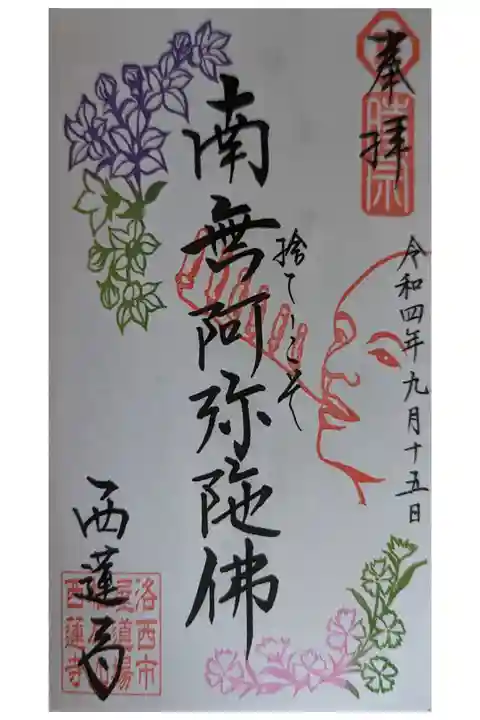 奉拝
令和四年九月十五日
捨てゝこそ
南無阿弥陀佛
西蓮寺
洛西市
西蓮寺